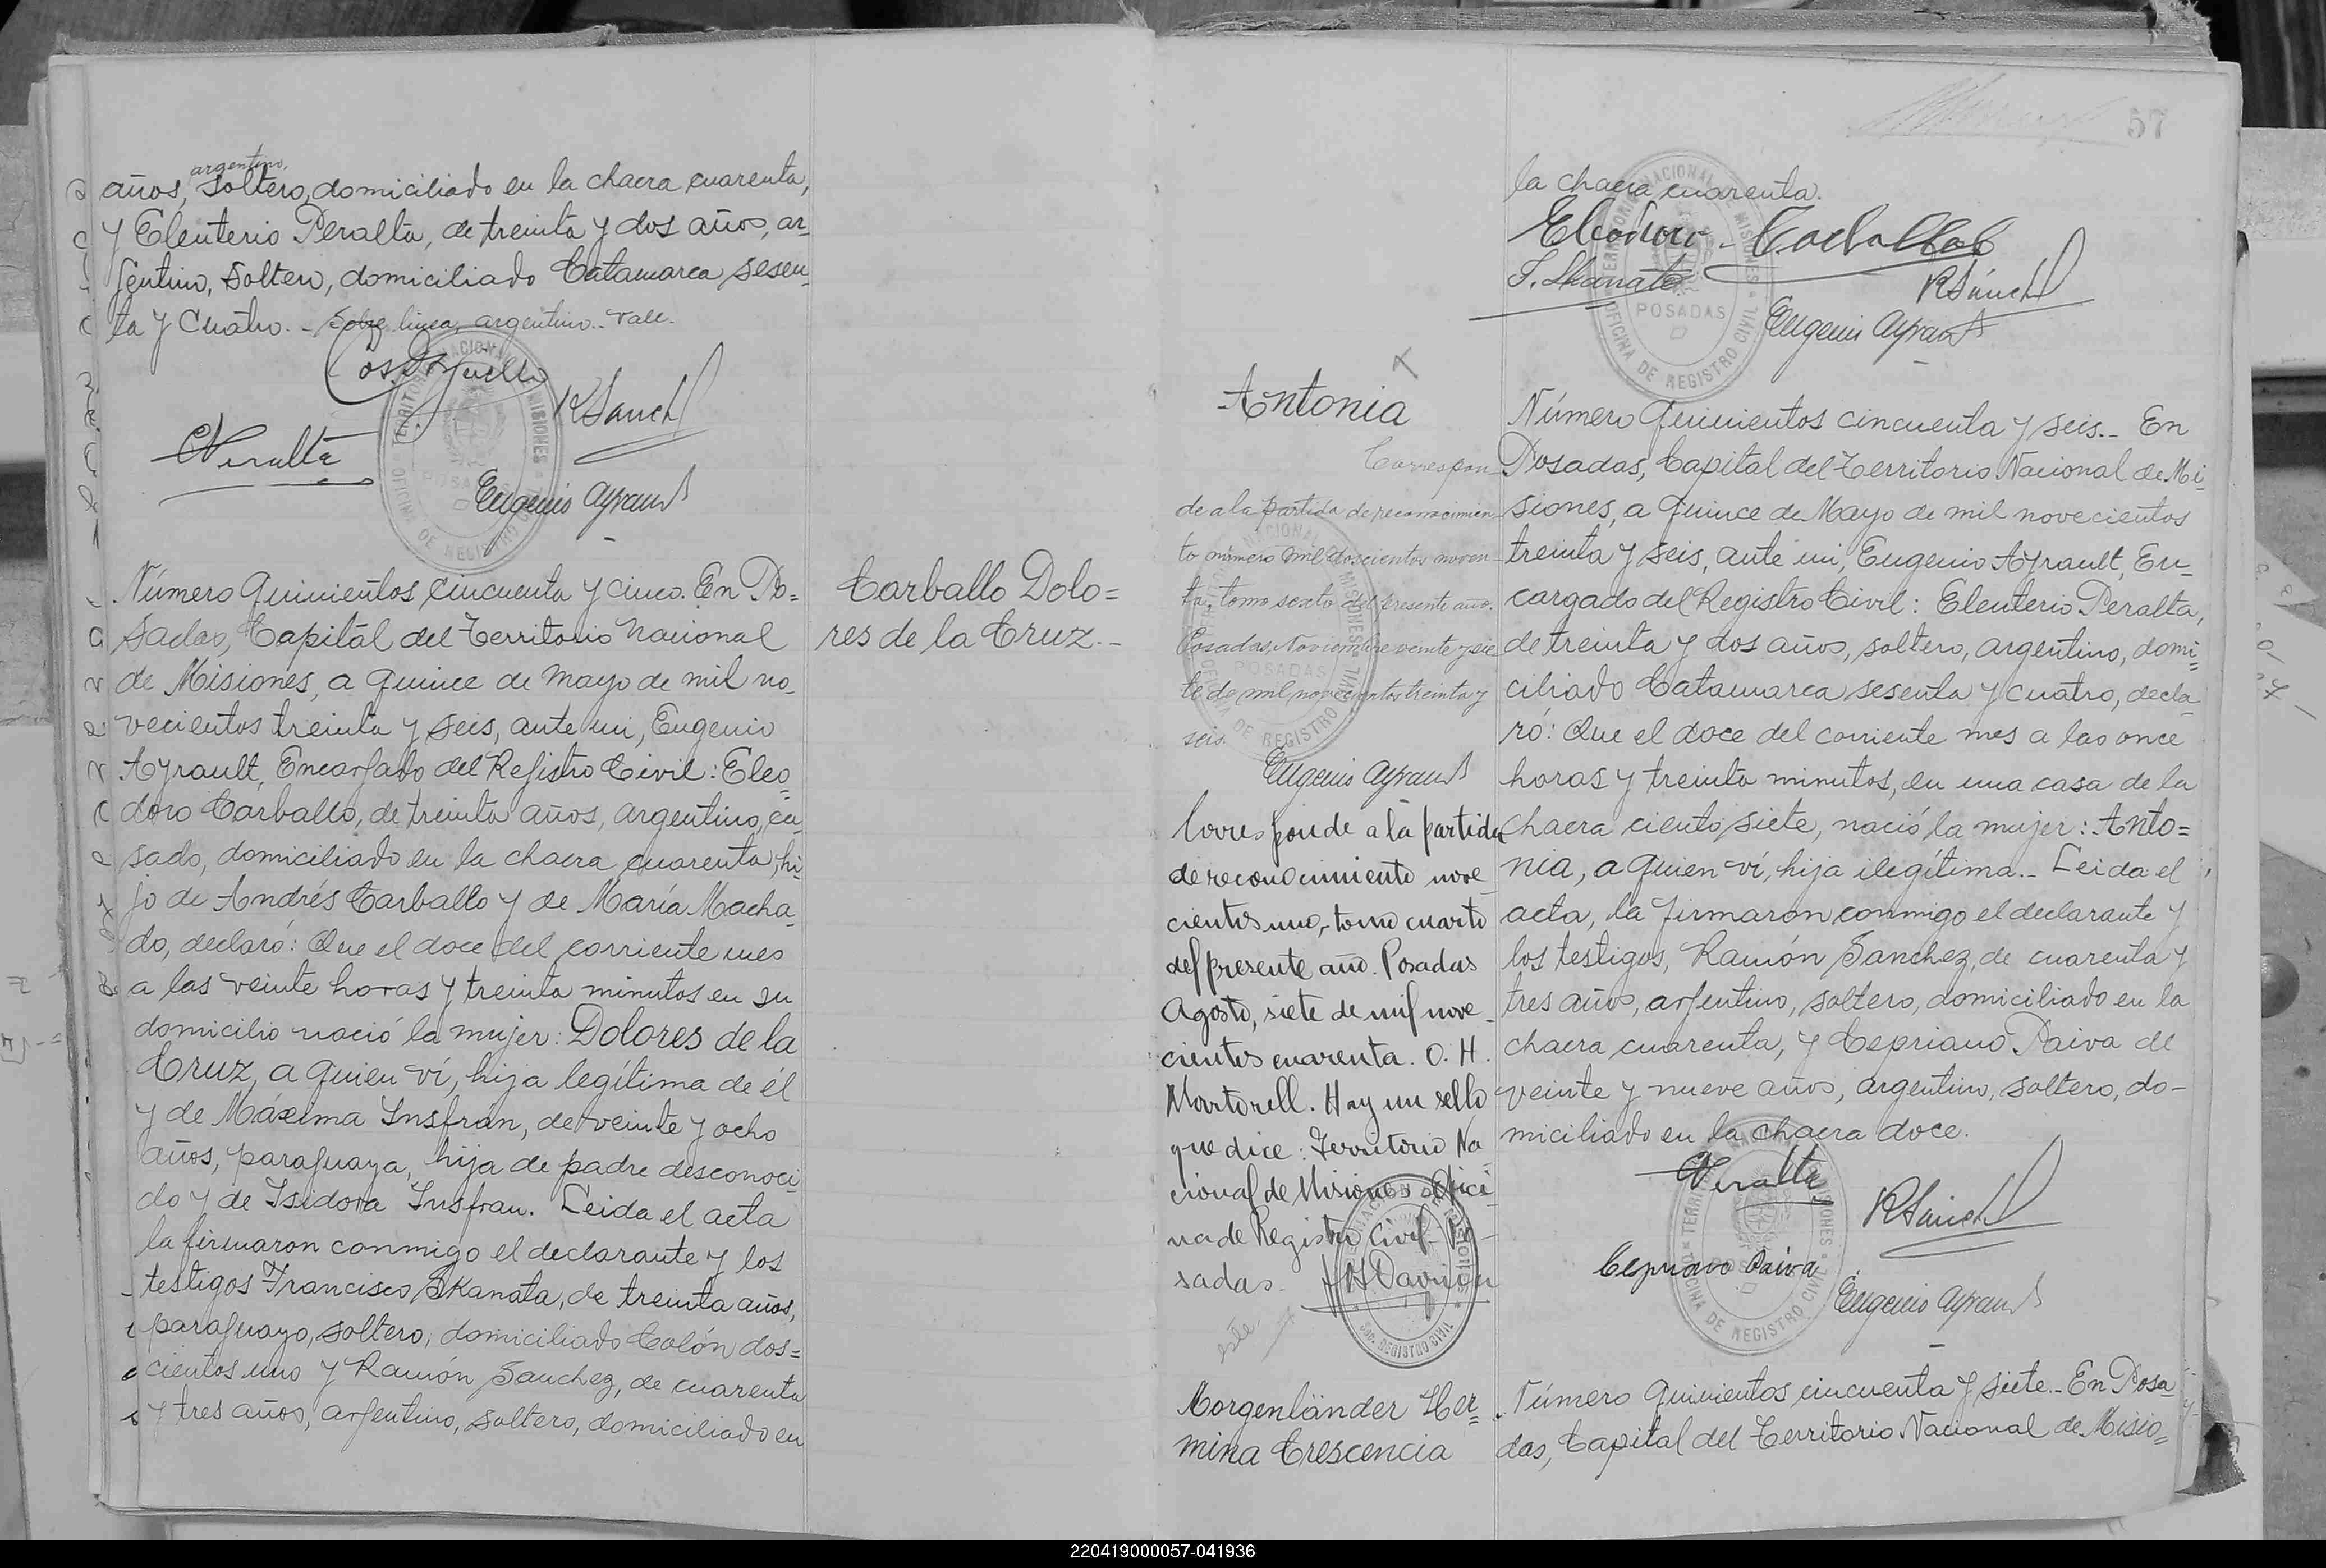 argentino,
años, soltero, domiciliado en la chacra cuarenta,
y Eleuterio Peralta, de treinta y dos años, ar-
gentino, soltero, domiciliado Catamarca sesen-
ta y cuatro.- Sobre linea, argentino.- Vale.
RSanch
EPeralta
Eugenio Ayrault
Número quinientos cincuenta y cinco. En Po=
sadas, Capital del Territorio Nacional
de Misiones, a quince de Mayo de mil no-
vecientos treinta y seis, ante mi, Eugenio
Ayrault, Encargado del Registro Civil: Eleo=
doro Carballo, de treinta años, argentino, ca-
sado, domiciliado en la chacra cuarenta, hi-
jo de Andrés Carballo y de María Macha-
do, declaró: Que el doce del corriente mes
a las veinte horas y treinta minutos en su
domicilio nació la mujer: Dolores de la
Cruz, a quien ví, hija legítima de él
y de Máxima Insfrán, de veinte y ocho
años, paraguaya, hija de padre desconoci-
do y de Isidora Insfran. Leida el acta
la firmaron conmigo el declarante y los
testigos Francisco Skanata, de treinta años,
paraguayo, soltero, domiciliado Colón dos=
cientos uno y Ramón Sanchez, de cuarenta
y tres años, argentino, soltero, domiciliado en
Carballo Dolo=
res de la Cruz.-
57
la chacra cuarenta.
Eleodoro Carballo
F. Skanata
RSanch
Eugenio Ayrault
TERRITORIO NACIONAL DE MISIONES
POSADAS
OFICINA DE REGISTRO CIVIL
Antonia
Correspon-
de a la partida de reconocimien-
to número mil doscientos noven-
ta, tomo sexto del presente año.
Posadas, Noviembre veinte y sie-
te de mil novecientos treinta y
seis.
Eugenio Ayrault
Corresponde a la partida
de reconocimiento nove-
cientos uno, tomo cuarto
del presente año. Posadas
Agosto, siete de mil nove-
cientos cuarenta. O. H.
Martorell. Hay un sello
que dice: Territorio Na-
cional de Misiones Ofici-
na de Registro Civil- Po-
sadas.
Morgenländer Her=
mina Crescencia
Número quinientos cincuenta y seis.- En
Posadas, Capital del Territorio Nacional de Mi-
siones, a quince de Mayo de mil novecientos
treinta y seis, ante mi, Eugenio Ayrault, En-
cargado del Registro Civil: Eleuterio Peralta,
de treinta y dos años, soltero, argentino, domi=
ciliado Catamarca sesenta y cuatro, decla-
ró: Que el doce del corriente mes a las once
horas y treinta minutos, en una casa de la
chacra ciento siete, nació la mujer: Anto=
nia, a quien ví, hija ilegítima.- Leida el
acta, la firmaron conmigo el declarante y
los testigos, Ramón Sanchez, de cuarenta y
tres años, argentino, soltero, domiciliado en la
chacra cuarenta, y Cepriano Paiva de
veinte y nueve años, argentino, soltero, do-
miciliado en la chacra doce.
EPeralta
RSanch
Cepriano Paiva
Eugenio Ayrault
Número quinientos cincuenta y siete.- En Posa
das, Capital del Territorio Nacional de Misio=
220419000057-041936